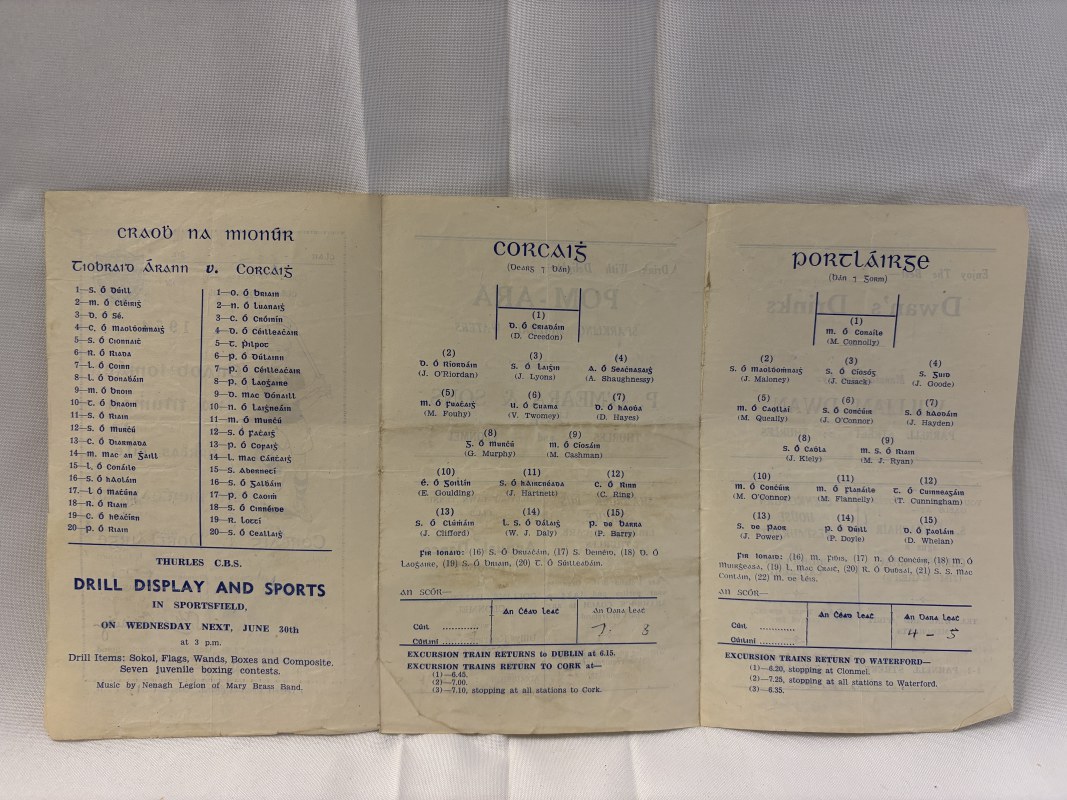 CRAOḂ NA MIONÚR
Tiobraid Árann v. Corcaiġ
1—S. Ó Duill
2—M. Ó Cléiriġ
3—D. Ó Sé.
4—C. Ó Maolḋoṁnaiġ
5—S. Ó Cionnaiċ
6—N. Ó Riada
7—L. Ó Coinn
8—L. Ó Donabáin
9—M. Ó Broin
10—T. Ó Braoin
11—S. Ó Riain
12—S. Ó Murċú
13—C. Ó Diarmada
14—M. Mac an Ġaill
15—L. Ó Conáile
16—S. Ó hAoláin
17—L. Ó Maċúna
18—N. Ó Riain
19—C. Ó hEaċírn
20—P. Ó Riain
1—O. Ó Briain
2—N. Ó Luanaiġ
3—C. Ó Cróinín
4—D. Ó Céilleaċair
5—T. Pilpot
6—P. Ó Dúlainn
7—P. Ó Céilleaċair
8—P. Ó Laoġaire
9—D. Mac Dónaill
10—N. Ó Laiġneáin
11—M. Ó Murċú
12—S. Ó Faċaiġ
13—P. Ó Cofaiġ
14—L. Mac Cárċaiġ
15—S. Aberneċí
16—S. Ó Galbáin
17—P. Ó Caoiṁ
18—S. Ó Cinnéide
19—R. Loċcí
20—S. Ó Ceallaiġ
THURLES C.B.S.
DRILL DISPLAY AND SPORTS
IN SPORTSFIELD,
ON WEDNESDAY NEXT, JUNE 30th
at 3 p.m.
Drill Items: Sokol, Flags, Wands, Boxes and Composite.
Seven juvenile boxing contests.
Music by Nenagh Legion of Mary Brass Band.
CORCAIĠ
(Dearg ⁊ Bán)
(1)
D. Ó Criadáin
(D. Creedon)
(2) (3) (4)
D. Ó Ríordáin S. Ó Laiġin A. Ó Seaċnasaiġ
(J. O'Riordan) (J. Lyons) (A. Shaughnessy)
(5) (6) (7)
M. Ó Fuaċaiġ U. Ó Tuama D. Ó hAoḋa
(M. Fouhy) (V. Twomey) (D. Hayes)
(8) (9)
G. Ó Murċú M. Ó Cíosáin
(G. Murphy) (M. Cashman)
(10) (11) (12)
É. Ó Goillín S. Ó hAirtnéada C. Ó Rinn
(E. Goulding) (J. Hartnett) (C. Ring)
(13) (14) (15)
S. Ó Clúmáin L. S. Ó Dálaiġ P. de Barra
(J. Clifford) (W. J. Daly) (P. Barry)
Fir Ionaid: (16) S. Ó Briaċáin, (17) S. Beinéid, (18) D. Ó
Laoġaire, (19) S. Ó Briain, (20) T. Ó Súilleaḃáin.
AN SCÓR—
An Céad Leat An Dara Leat
Cúil ............ 7. 3
Cúilíní ............
EXCURSION TRAIN RETURNS to DUBLIN at 6.15.
EXCURSION TRAINS RETURN TO CORK at—
(1)—6.45.
(2)—7.00.
(3)—7.10, stopping at all stations to Cork.
PORTLÁIRGE
(Bán ⁊ Gorm)
(1)
M. Ó Conaile
(M. Connolly)
(2) (3) (4)
S. Ó Maolḋoṁnaiġ S. Ó Cíosóg S. Guid
(J. Maloney) (J. Cusack) (J. Goode)
(5) (6) (7)
M. Ó Caollaí S. Ó Concúir S. Ó hAodáin
(M. Queally) (J. O'Connor) (J. Hayden)
(8) (9)
S. Ó Cadla M. S. Ó Riain
(J. Kiely) (M. J. Ryan)
(10) (11) (12)
M. Ó Concúir M. Ó Flanáile T. Ó Cuinneagáin
(M. O'Connor) (M. Flannelly) (T. Cunningham)
(13) (14) (15)
S. de Paor P. Ó Duill D. Ó Faoláin
(J. Power) (P. Doyle) (D. Whelan)
Fir Ionaid: (16) M. (17) N. Ó Concúir, (18) M. Ó
Muirgeasa, (19) L. Mac Craiṫ, (20) R. Ó (21) S. S. Mac
(22) M. de Léis.
AN SCÓR—
An Céad Leat An Dara Leat
Cúil ............ 4 - 5
Cúilíní ............
EXCURSION TRAINS RETURN TO WATERFORD—
(1)—6.20, stopping at Clonmel.
(2)—7.25, stopping at all stations to Waterford.
(3)—6.35.